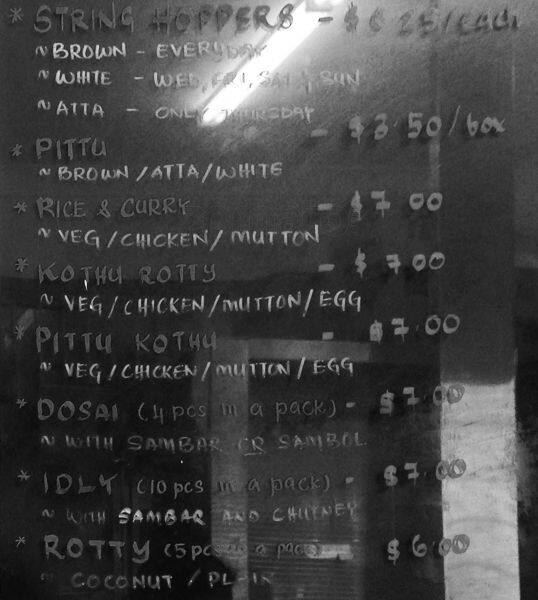 * STRING HOPPERS - $0.25/each
~ BROWN - EVERYDAY
~ WHITE - WED, FRI, SAT & SUN
~ ATTA - ONLY THURSDAY
* PITTU - $3.50/box
~ BROWN/ATTA/WHITE
* RICE & CURRY - $7.00
~ VEG/CHICKEN/MUTTON
* KOTHU ROTTY - $7.00
~ VEG/CHICKEN/MUTTON/EGG
* PITTU KOTHU - $7.00
~ VEG/CHICKEN/MUTTON/EGG
* DOSAI (4 pcs in a pack) - $7.00
~ WITH SAMBAR OR SAMBOL
* IDLY (10 pcs in a pack) - $7.00
~ WITH SAMBAR AND CHUTNEY
* ROTTY (5 pcs in a pack) - $6.00
~ COCONUT / PLAIN